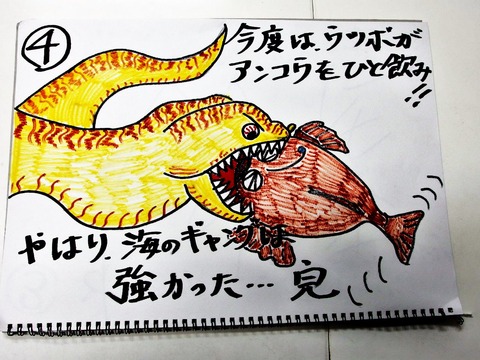 ④
今度は、ウツボが
アンコウをひと飲み!!
やはり、海のギャングは
強かった…完